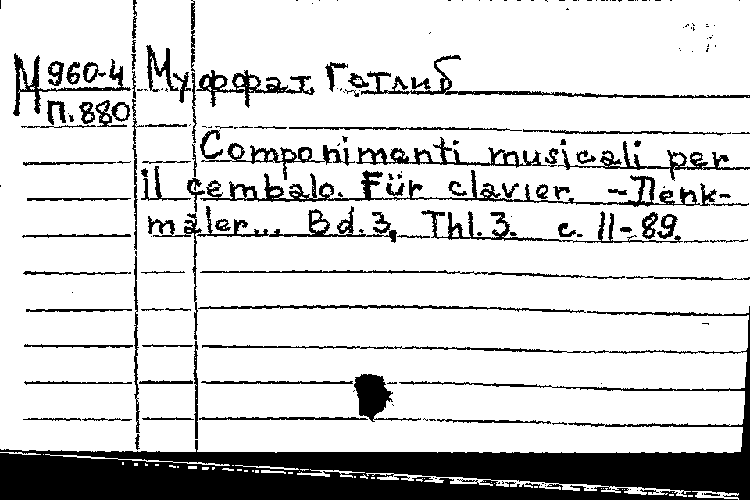 М 960-4 Муффат, Готлиб
П.880
Componimenti musicali per
il cembalo. Für clavier. – Denk-
mäler... Bd. 3, Thl. 3. с. 11-89.